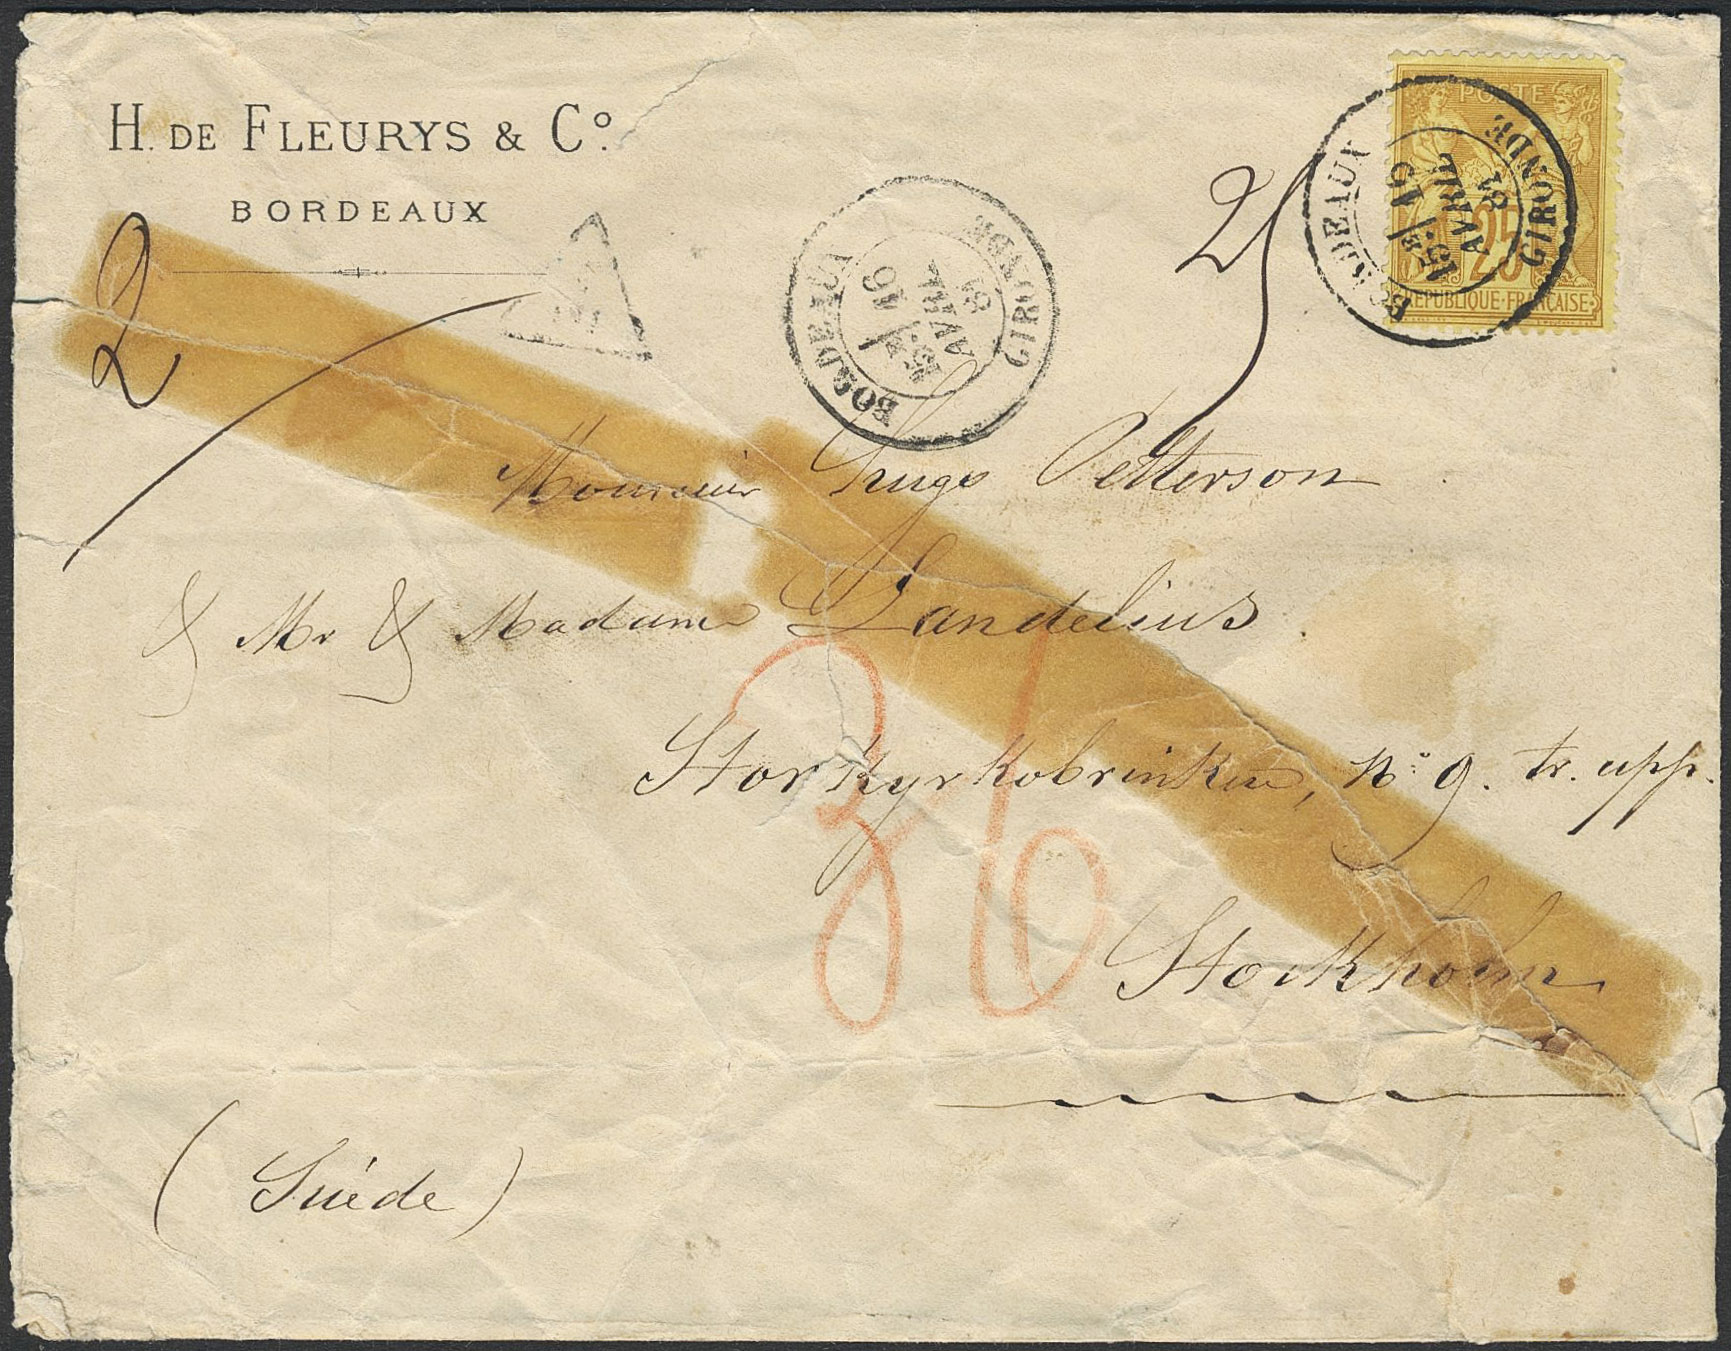 H. DE FLEURYS & Cº.
BORDEAUX
2
25
POSTE
25
REPUBLIQUE FRANÇAISE
BORDEAUX
15
AVRIL
81
GIRONDE
BORDEAUX
16
AVRIL
81
GIRONDE
Monsieur Hugo Petterson
& Mr & Madame Landelius
Storkyrkobrinken, No 9. tr. upp.
36
Stockholm
(Suède)